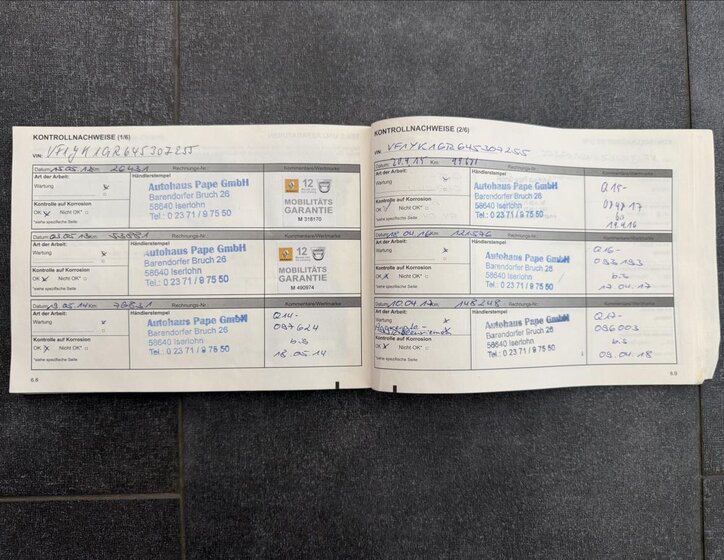 KONTROLLNACHWEISE (1/6)
VIN: VF1YK1GR645307255
Datum: 15.05.12 Km: 26431 Rechnungs-Nr.: Kommentare/Wertmarke
Art der Arbeit: Händlerstempel
Wartung x
Autohaus Pape GmbH
Barendorfer Bruch 26
58640 Iserlohn
Tel.: 0 23 71 / 9 75 50
Kontrolle auf Korrosion
OK x Nicht OK*
*siehe spezifische Seite
12
MOBILITÄTS
GARANTIE
M 318170
Datum: 03.05.13 Km: Rechnungs-Nr.: Kommentare/Wertmarke
Art der Arbeit: Händlerstempel
Wartung x
Autohaus Pape GmbH
Barendorfer Bruch 26
58640 Iserlohn
Tel.: 0 23 71 / 9 75 50
Kontrolle auf Korrosion
OK x Nicht OK*
*siehe spezifische Seite
12
MOBILITÄTS
GARANTIE
M 490974
Datum: 19.05.14 Km: 76831 Rechnungs-Nr.: Kommentare/Wertmarke
Art der Arbeit: Händlerstempel
Wartung x
Autohaus Pape GmbH
Barendorfer Bruch 26
58640 Iserlohn
Tel.: 0 23 71 / 9 75 50
Kontrolle auf Korrosion
OK x Nicht OK*
*siehe spezifische Seite
Q14-
097624
bis
18.05.14
6.8
KONTROLLNACHWEISE (2/6)
VIN: VF1YK1GR645307255
Datum: 20.4.15 Km: 99671 Rechnungs-Nr.: Kommentare/Wertmarke
Art der Arbeit: Händlerstempel
Wartung x
Autohaus Pape GmbH
Barendorfer Bruch 26
58640 Iserlohn
Tel.: 0 23 71 / 9 75 50
Kontrolle auf Korrosion
OK Nicht OK*
*siehe spezifische Seite
Q15-
bis
19.4.16
Datum: 18.04.16 Km: 121576 Rechnungs-Nr.: Kommentare/Wertmarke
Art der Arbeit: Händlerstempel
Wartung x
Autohaus Pape GmbH
Barendorfer Bruch 26
58640 Iserlohn
Tel.: 0 23 71 / 9 75 50
Kontrolle auf Korrosion
OK x Nicht OK*
*siehe spezifische Seite
Q16-
093193
bis
17.04.17
Datum: 10.04.17 Km: 148248 Rechnungs-Nr.: Kommentare/Wertmarke
Art der Arbeit: Händlerstempel
Wartung x
Autohaus Pape GmbH
Barendorfer Bruch 26
58640 Iserlohn
Tel.: 0 23 71 / 9 75 50
Kontrolle auf Korrosion
OK x Nicht OK*
*siehe spezifische Seite
Q17-
096003
bis
09.04.18
6.9